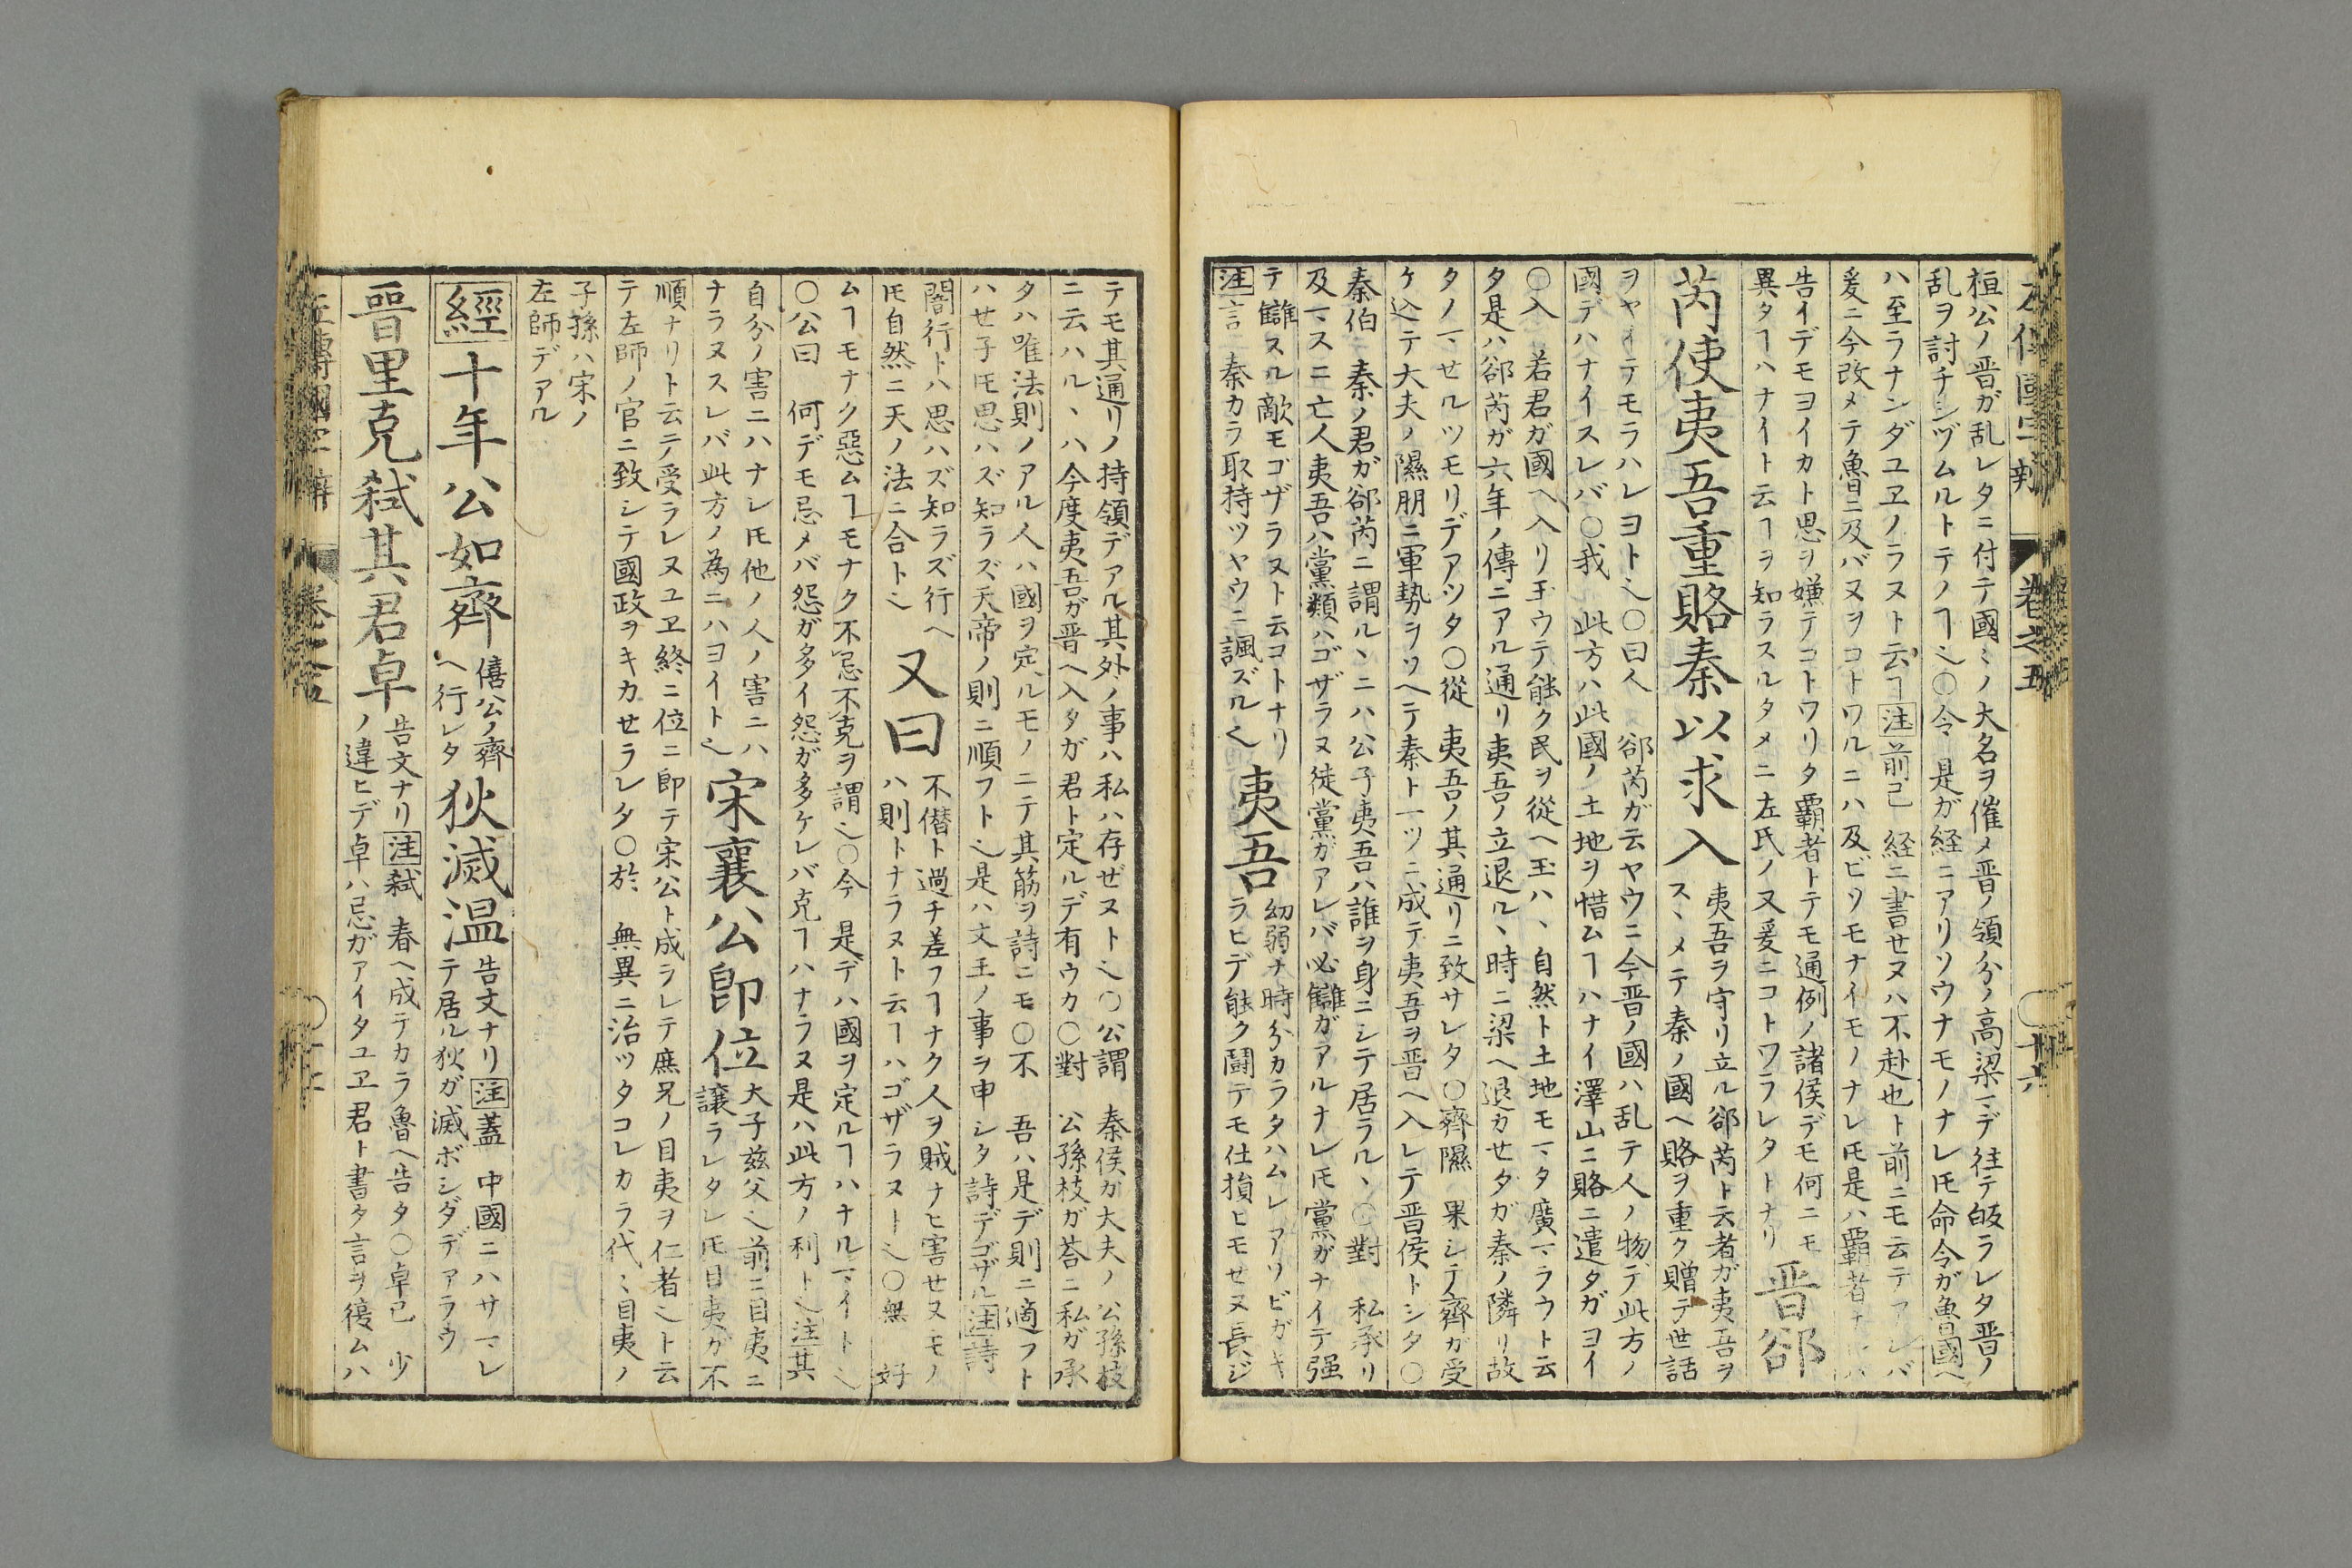 左傳國字辨 卷之五
桓公ノ晋ガ乱レタニ付テ國〻ノ大名ヲ催メ晋ノ領分ノ高梁マデ往テ皈ラレタ晋ノ
乱ヲ討チシヅムルトテノヿ〻○令 是ガ経ニアリソウナモノナレ𪜈命令ガ魯國ヘ
ハ至ラナンダユヱノラヌト云ヿ注前已 経ニ書セヌハ不赴也ト前ニモ云テアレバ
爰ニ今改メテ魯ニ及バヌヲコトワルニハ及ビソモナイモノナレ𪜈是ハ覇者ナレバ
告イデモヨイカト思ヲ嫌テコトワリタ覇者トテモ通例ノ諸侯デモ何ニモ
異タヿハナイト云ヿヲ知ラスルタメニ左氏ノ又爰ニコトワラレタトナリ
晋郤
芮使夷吾重賂秦以求入
夷吾ヲ守リ立ル郤芮ト云者ガ夷吾ヲ
スヽメテ秦ノ國ヘ賂ヲ重ク贈テ世話
ヲヤイテモラハレヨト〻○曰人 郤芮ガ云ヤウニ今晋ノ國ハ乱テ人ノ物デ此方ノ
國デハナイスレバ○我 此方ハ此國ノ土地ヲ惜ムヿハナイ澤山ニ賂ニ遣タガヨイ
○入 若君ガ國ヘ入リ玉ウテ能ク民ヲ從ヘ玉ハヽ自然ト土地モマタ廣マラウト云
タ是ハ郤芮ガ六年ノ傳ニアル通リ夷吾ノ立退ルヽ時ニ梁ヘ退カセタガ秦ノ隣リ故
タノマセルツモリデアツタ○從 夷吾ノ其通リニ致サレタ○齊隰 果シテ齊ガ受
ケ込テ大夫ノ隰朋ニ軍勢ヲソヘテ秦ト一ツニ成テ夷吾ヲ晋ヘ入レテ晋侯トシタ○
秦伯 秦ノ君ガ郤芮ニ謂ルヽニハ公子夷吾ハ誰ヲ身ニシテ居ラルヽ○對 私承リ
及マスニ亡人夷吾ハ黨類ハゴザラヌ徒黨ガアレバ必讎ガアルナレ𪜈黨ガナイテ强
テ讎スル敵モゴザラヌト云コトナリ
注言 秦カラ取持ツヤウニ諷ズル〻
夷吾
幼弱ナ時分カラタハムレアソビガキ
ラヒデ能ク鬪テモ仕損ヒモセヌ長ジ
テモ其通リノ持領デアル其外ノ事ハ私ハ存ゼヌト〻○公謂 秦侯ガ大夫ノ公孫枝
ニ云ハルヽハ今度夷吾ガ晋ヘ入タガ君ト定ルデ有ウカ○對 公孫枝ガ荅ニ私ガ承
タハ唯法則ノアル人ハ國ヲ定ルモノニテ其筋ヲ詩ニモ○不 吾ハ是デ則ニ適フト
ハセ子𪜈思ハズ知ラズ天帝ノ則ニ順フト〻是ハ文王ノ事ヲ申シタ詩デゴザル注詩
闇行トハ思ハズ知ラズ行ヘ
𪜈自然ニ天ノ法ニ合ト〻
又曰
不僣ト過チ差フヿナク人ヲ賊ナヒ害セヌモノ
ハ則トナラヌト云ヿハゴザラヌト〻○無 好
ムヿモナク惡ムヿモナク不忌不克ヲ謂〻○今 是デハ國ヲ定ルヿハナルマイト〻
○公曰 何デモ忌メバ怨ガ多イ怨ガ多ケレバ克ヿハナラヌ是ハ此方ノ利ト〻注其
自分ノ害ニハナレ𪜈他ノ人ノ害ニハ
ナラヌスレバ此方ノ為ニハヨイト〻
宋襄公卽位
大子玆父〻前ニ目夷ニ
讓ラレタレ𪜈目夷ガ不
順ナリト云テ受ラレヌユヱ終ニ位ニ卽テ宋公ト成ラレテ庶兄ノ目夷ヲ仁者〻ト云
テ左師ノ官ニ致シテ國政ヲキカセラレタ○於 無異ニ治ツタコレカラ代〻目夷ノ
子孫ハ宋ノ
左師デアル
經十年公如齊
僖公ノ齊
ヘ行レタ
狄滅温
告文ナリ注蓋 中國ニハサマレ
テ居ル狄ガ滅ボシダデアラウ
晋里克弑其君卓
告文ナリ注弑 春ヘ成テカラ魯ヘ告タ○卓已 少
ノ違ヒデ卓ハ忌ガアイタユヱ君ト書タ言ヲ後ムハ
左傳國字辨 卷之五